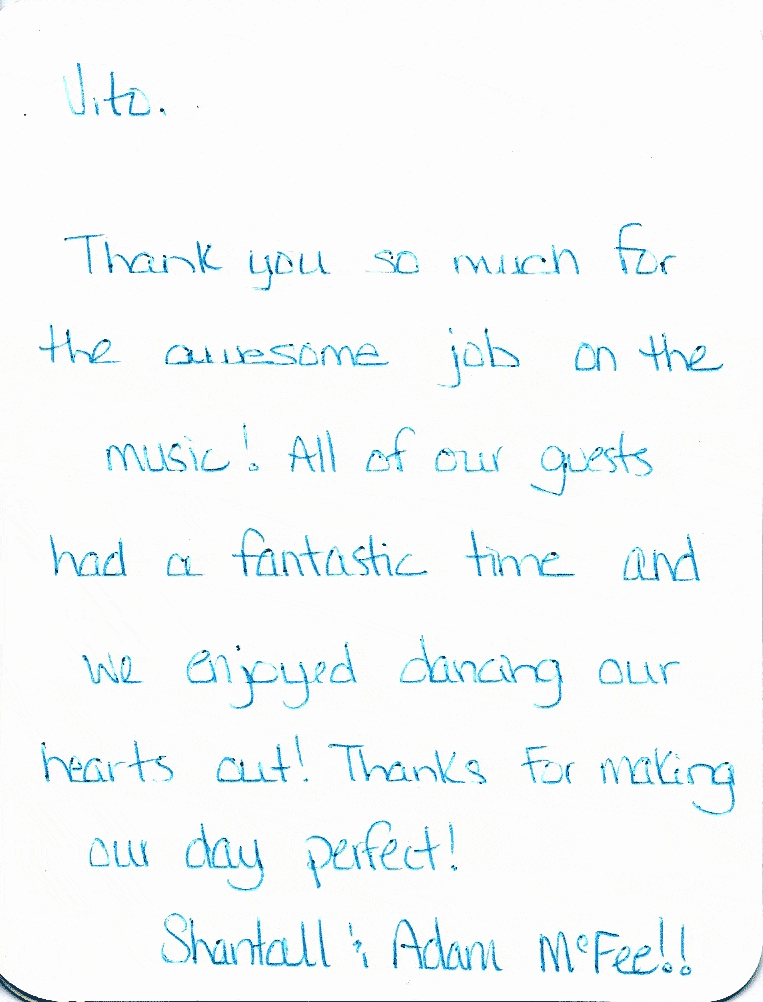 Vito.
Thank you so much for
the awesome job on the
music! All of our guests
had a fantastic time and
we enjoyed dancing our
hearts out! Thanks for making
our day perfect!
Shantall & Adam McFee!!